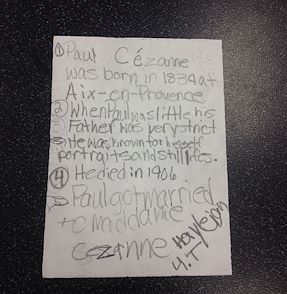 ① Paul Cézanne
was born in 1834 at
Aix-en-Provence
② When Paul was little his
③ Father was very strict
③ He was known for hisself
portraits and still lifes.
④ He died in 1906
⑤ Paul got married
to Maddame
Cezanne
4.T